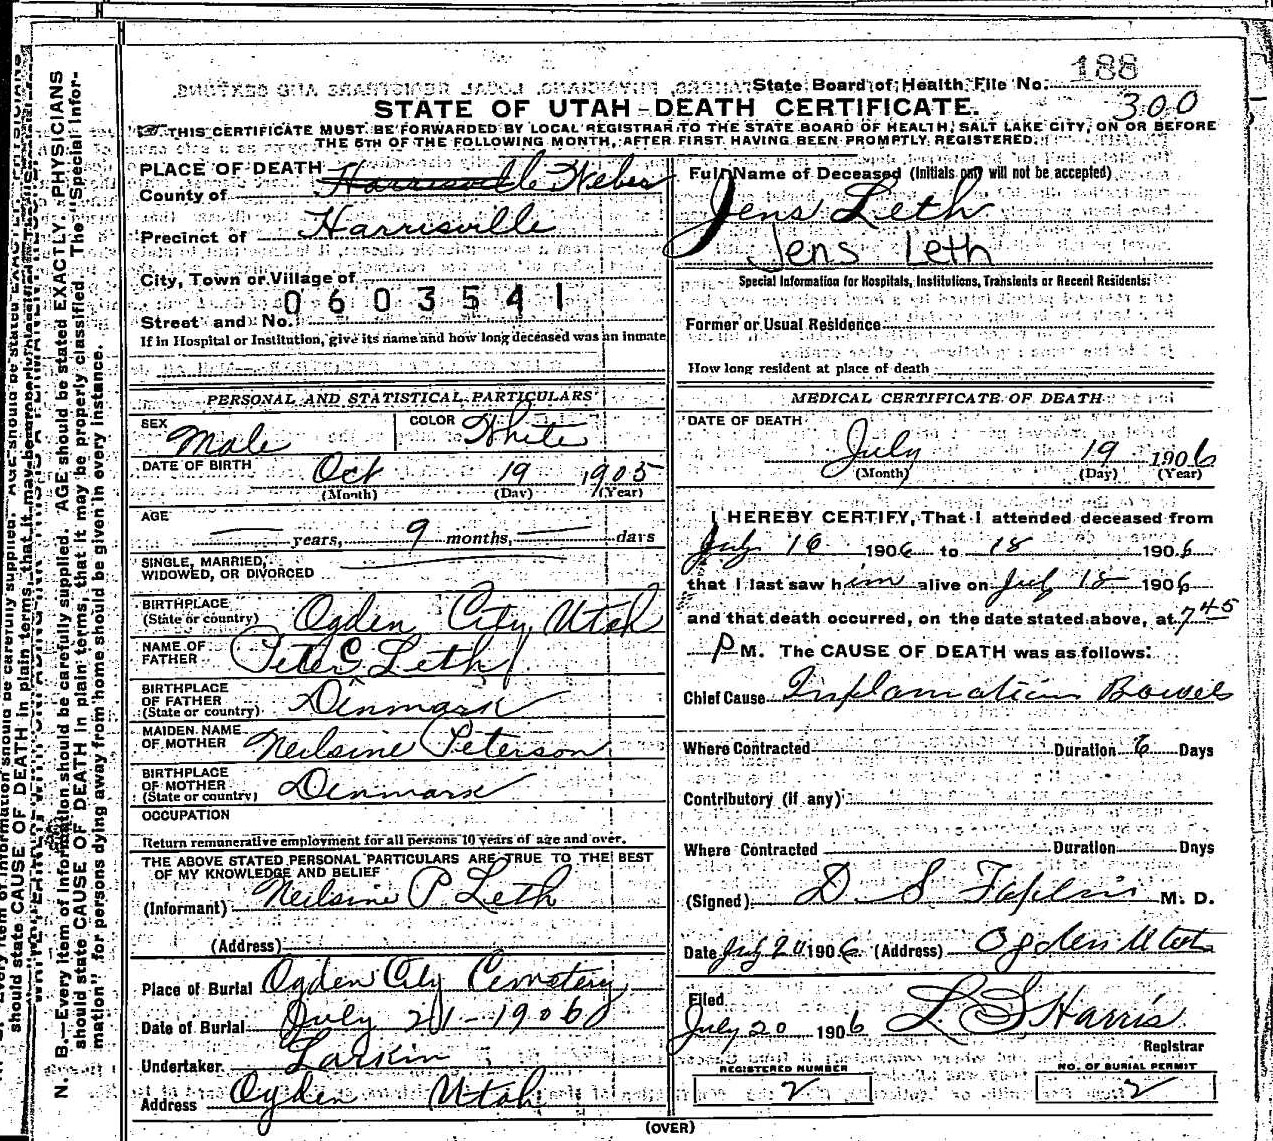 State Board of Health File No. 188
300
STATE OF UTAH-DEATH CERTIFICATE.
THIS CERTIFICATE MUST BE FORWARDED BY LOCAL REGISTRAR TO THE STATE BOARD OF HEALTH, SALT LAKE CITY, ON OR BEFORE
THE 5TH OF THE FOLLOWING MONTH, AFTER FIRST HAVING BEEN PROMPTLY REGISTERED.
PLACE OF DEATH
County of Harrisville Weber
Precinct of Harrisville
City, Town or Village of
0603541
Street and No.
If in Hospital or Institution, give its name and how long deceased was an inmate
PERSONAL AND STATISTICAL PARTICULARS
SEX Male COLOR White
DATE OF BIRTH Oct 19 1905
(Month) (Day) (Year)
AGE
— years, 9 months, — days
SINGLE, MARRIED,
WIDOWED, OR DIVORCED
BIRTHPLACE
(State or country) Ogden City, Utah
NAME OF
FATHER Peter C Leth
BIRTHPLACE
OF FATHER
(State or country) Denmark
MAIDEN NAME
OF MOTHER Neilsine Peterson
BIRTHPLACE
OF MOTHER
(State or country) Denmark
OCCUPATION
Return remunerative employment for all persons 10 years of age and over.
THE ABOVE STATED PERSONAL PARTICULARS ARE TRUE TO THE BEST
OF MY KNOWLEDGE AND BELIEF
(Informant) Neilsine P Leth
(Address)
Place of Burial Ogden City Cemetery
Date of Burial July 21-1906
Undertaker Larkin
Address Ogden Utah
Full Name of Deceased (Initials only will not be accepted)
Jens Leth
Jens Leth
Special Information for Hospitals, Institutions, Transients or Recent Residents:
Former or Usual Residence
How long resident at place of death
MEDICAL CERTIFICATE OF DEATH
DATE OF DEATH
July 19 1906
(Month) (Day) (Year)
I HEREBY CERTIFY, That I attended deceased from
July 16 1906 to 18 1906
that I last saw him alive on July 18 1906
and that death occurred, on the date stated above, at 7 45
P M. The CAUSE OF DEATH was as follows:
Chief Cause Inflamation Bowels
Where Contracted Duration 6 Days
Contributory (if any)
Where Contracted Duration Days
(Signed) D. S. M. D.
Date July 20 1906 (Address) Ogden Utah
Filed
July 20 1906 L S Harris
Registrar
REGISTERED NUMBER
2
NO. OF BURIAL PERMIT
2
(OVER)
N. B.—Every item of information should be carefully supplied. AGE should be stated EXACTLY. PHYSICIANS
should state CAUSE OF DEATH in plain terms, that it may be properly classified. The "Special Infor-
mation" for persons dying away from home should be given in every instance.